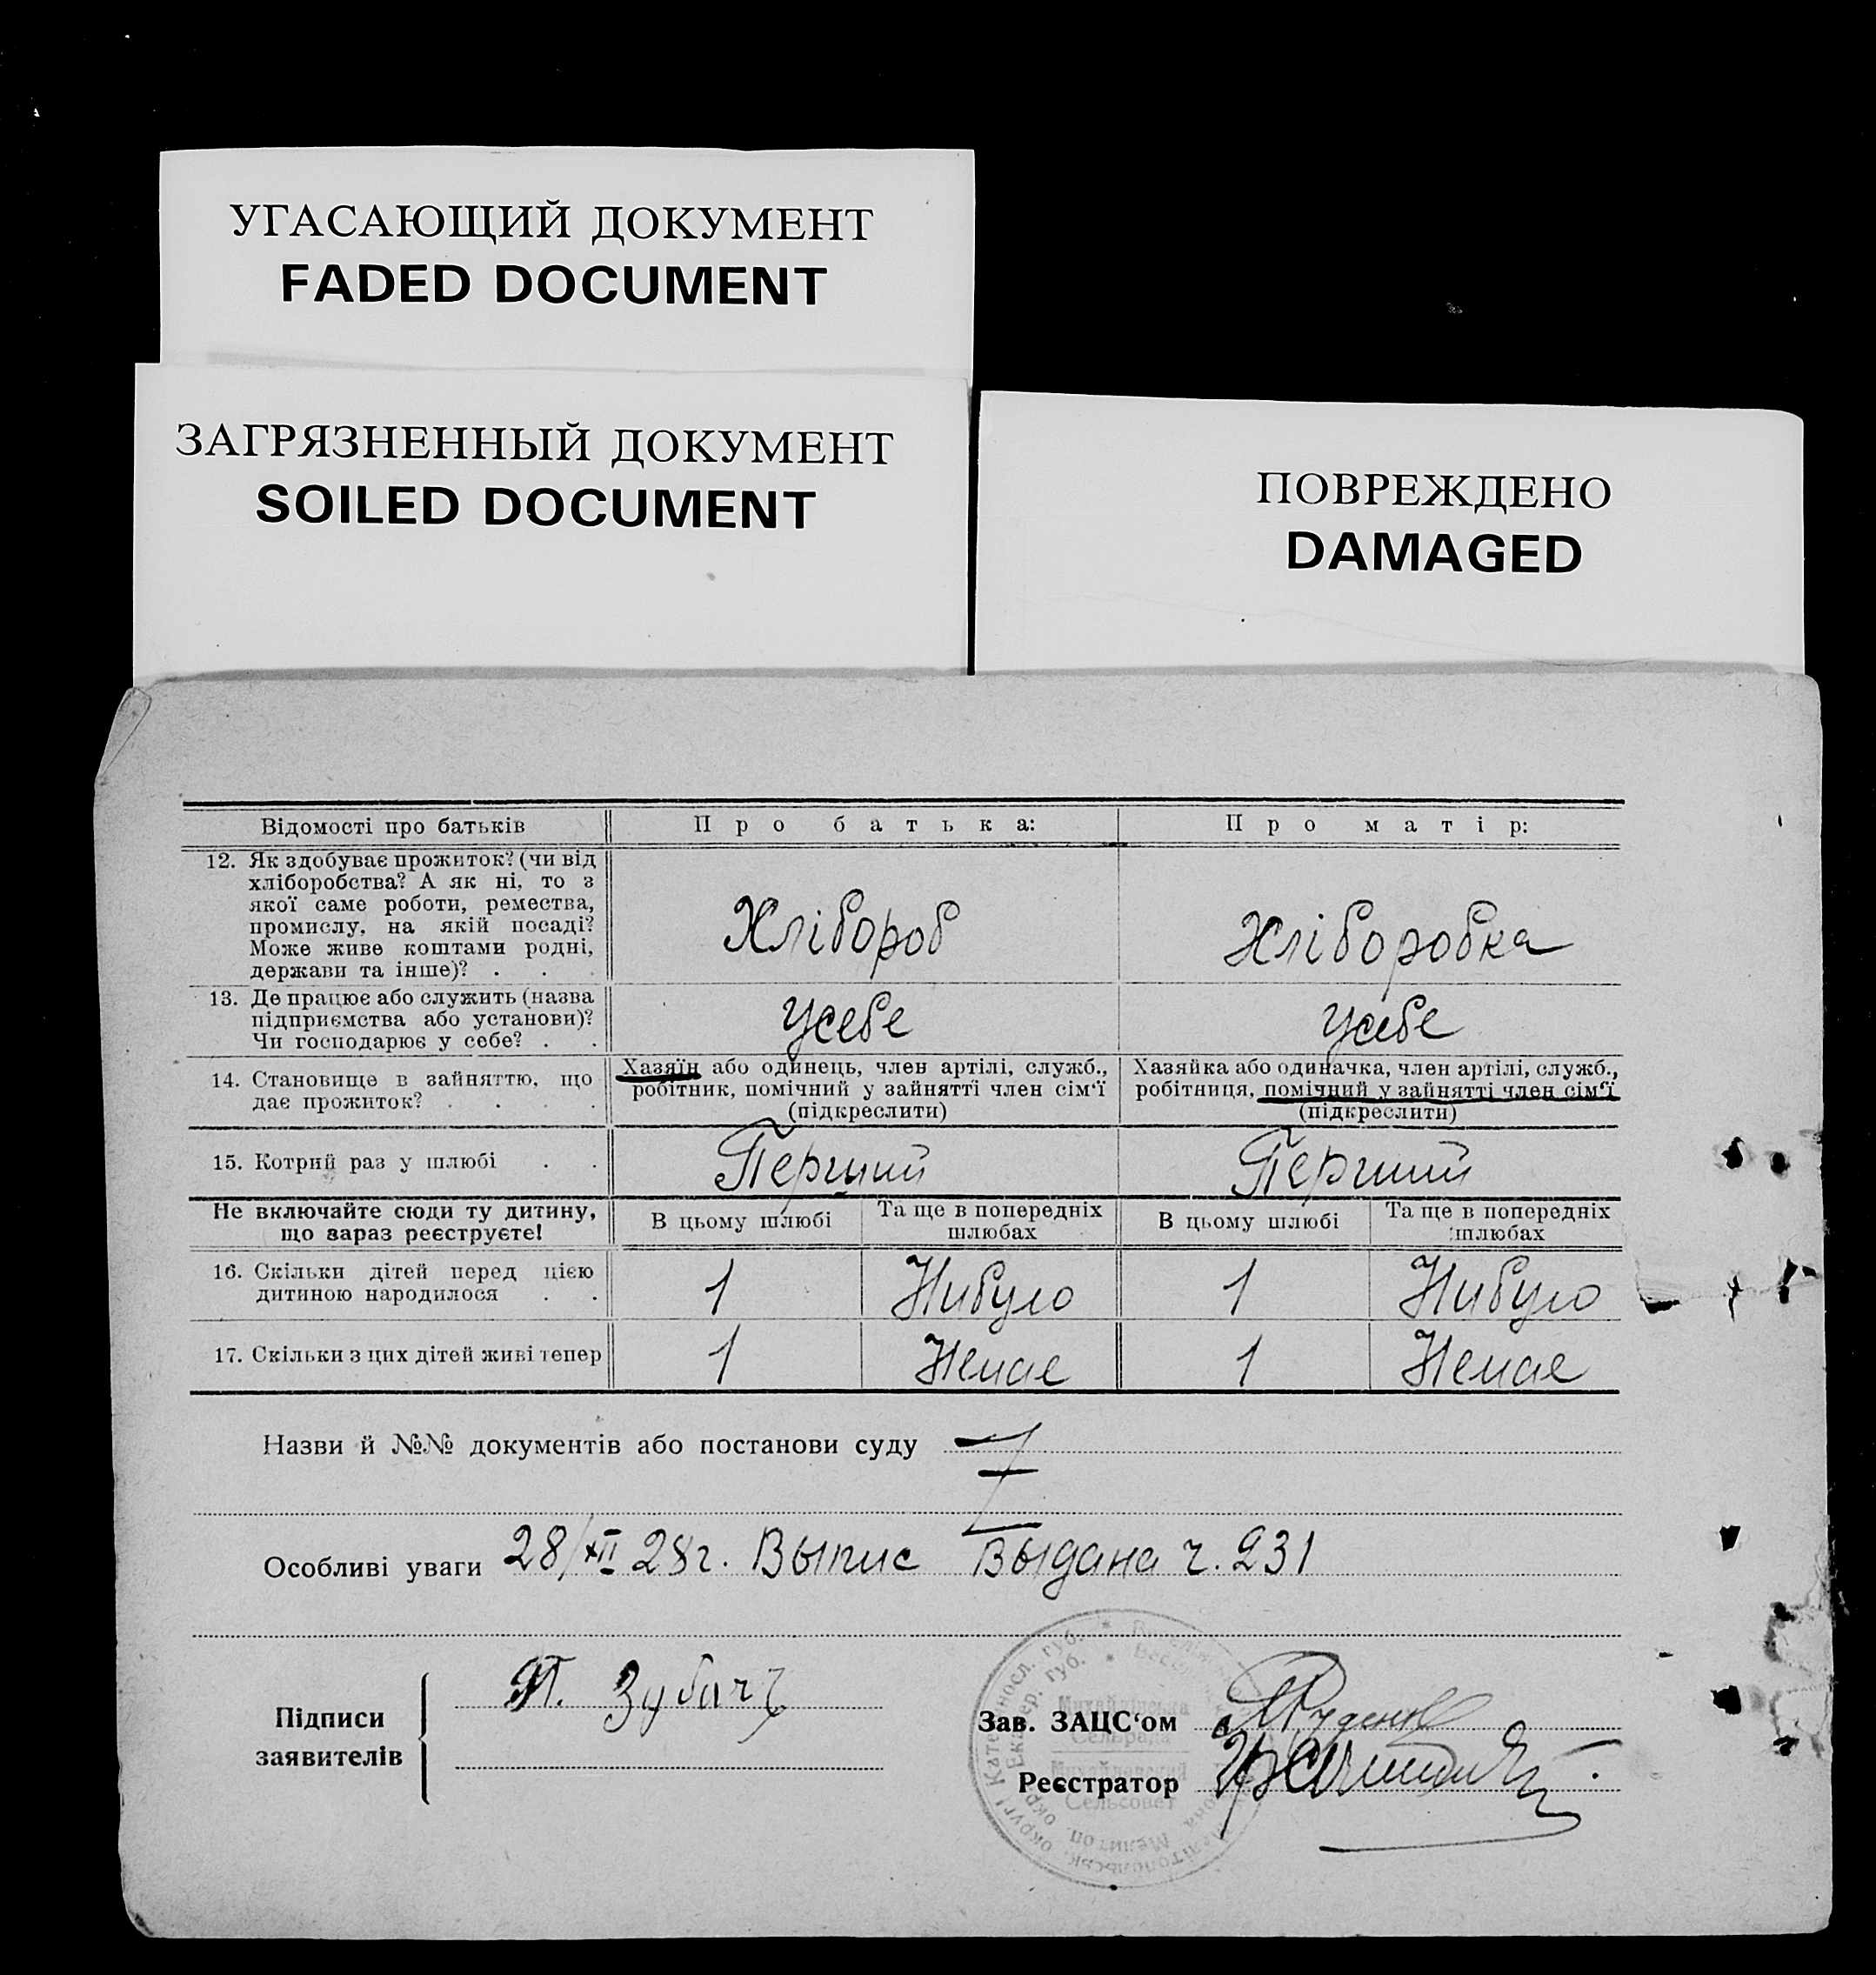 УГАСАЮЩИЙ ДОКУМЕНТ
FADED DOCUMENT
ЗАГРЯЗНЕННЫЙ ДОКУМЕНТ
SOILED DOCUMENT
ПОВРЕЖДЕНО
DAMAGED
Відомості про батьків
Про батька:
Про матір:
12. Як здобуває прожиток? (чи від
хліборобства? А як ні, то з
якої саме роботи, ремества,
промислу, на якій посаді?
Може живе коштами родні,
держави та інше)? . . .
Хлібороб
Хліборобка
13. Де працює або служить (назва
підприємства або установи)?
Чи господарює у себе? . .
Усебе
Усебе
14. Становище в зайняттю, що
дає прожиток? . . . .
Хазяїн або одинець, член артілі, служб.,
робітник, помічний у зайнятті член сім'ї
(підкреслити)
Хазяйка або одиначка, член артілі, служб.,
робітниця, помічний у зайнятті член сім'ї
(підкреслити)
15. Котрий раз у шлюбі . .
Перший
Перший
Не включайте сюди ту дитину,
що зараз реєструєте!
В цьому шлюбі
Та ще в попередніх
шлюбах
В цьому шлюбі
Та ще в попередніх
шлюбах
16. Скільки дітей перед цією
дитиною народилося . .
1
Нибуло
1
Нибуло
17. Скільки з цих дітей живі тепер
1
Немае
1
Немае
Назви й №№ документів або постанови суду
Особливі уваги 28/XII 28г. Выпис Выдана ч. 231
Підписи
заявителів
П. Зубачъ
Зав. ЗАЦС'ом
Реєстратор
Михайлівська
Сельрада
Михайловский
Сельсовет